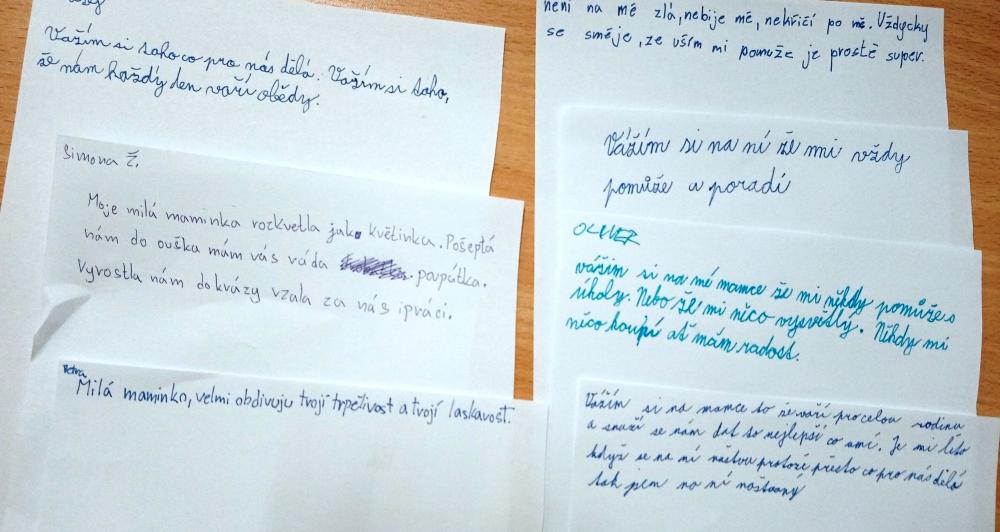 Vážím si toho co pro nás dělá. Vážím si toho,
že nám každý den vaří obědy.
Simona Ž.
Moje milá maminka rozkvetla jako květinka. Pošeptá
nám do ouška mám vás ráda poupátka.
Vyrostla nám do krázy vzala za nás ipráci.
Petra
Milá maminko, velmi obdivuju tvojí trpělivost a tvojí laskavost.
není na mě zlá, nebije mě, nekřičí po mě. Vždycky
se směje, ze vším mi pomuže je prostě super.
Vážím si na ní že mi vždy
pomůže a poradí
OLIVER
vážim si na mé mamce že mi někdy pomůže s
úkoly. Nebo že mi něco vysvětlý. Někdy mi
něco koupí ať mám radost.
Vážím si na mamce to že vaří pro celou rodinu
a snaží se nám dat to nejlepší co umí. Je mi líto
když se na ní naštvu protože přesto co pro nás dělá
tak jsem na ní naštvaný